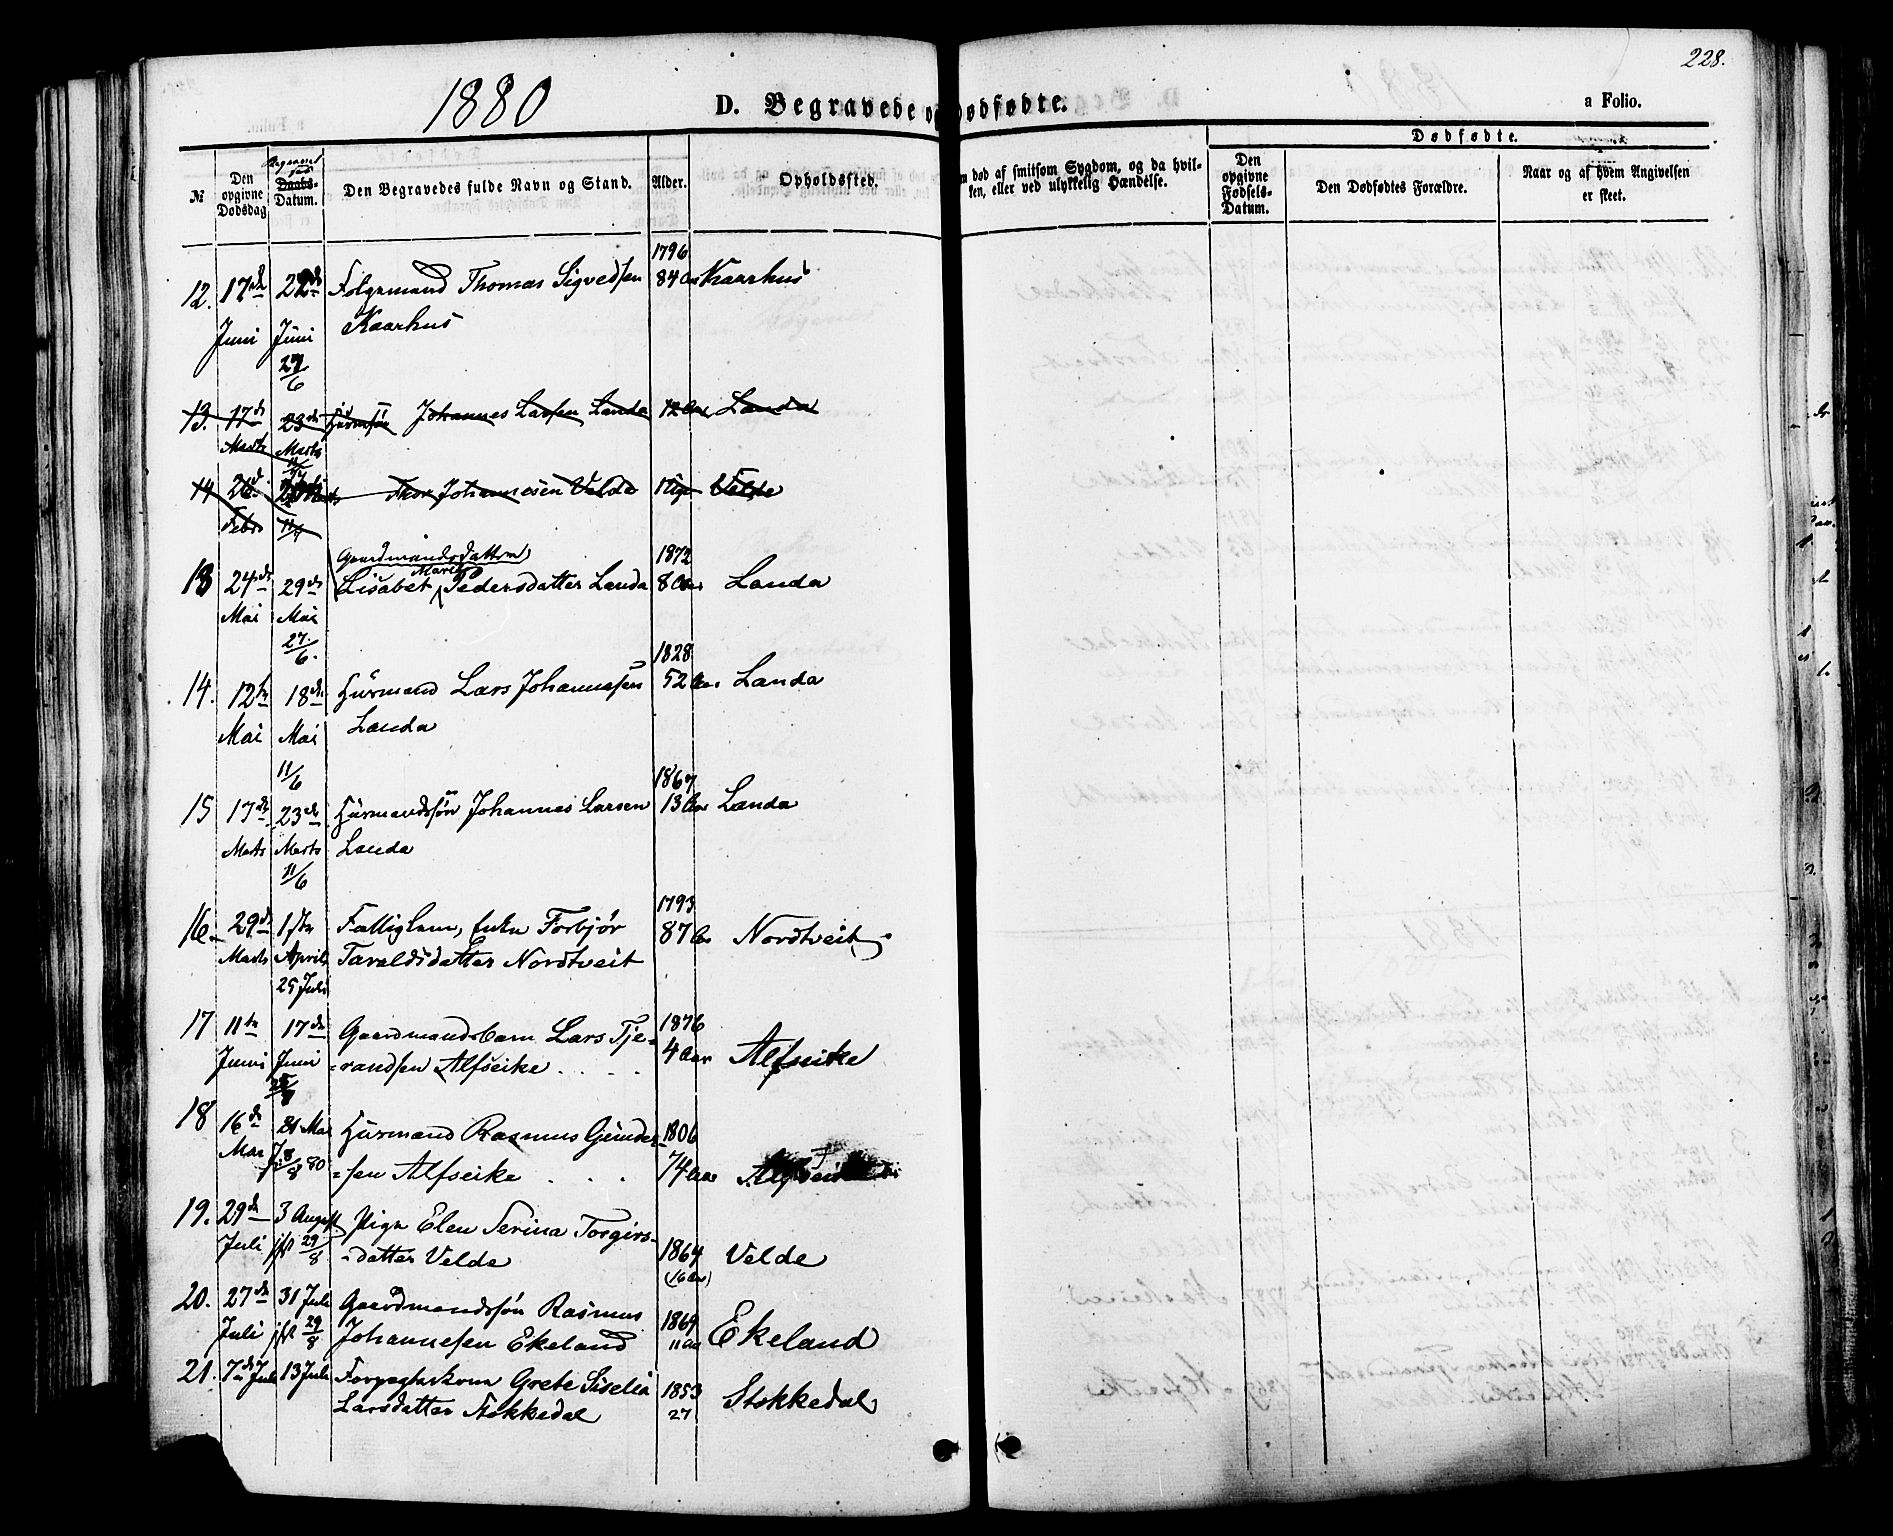 228.
1880
D. Begravede og Dødfødte.
a Folio.
Dødfødte.
№
Den opgivne Dødsdag
Begravet Daabs-Datum.
Den Begravedes fulde Navn og Stand.
Alder.
Opholdssted.
død af smitsom Sygdom, og da hvilken, eller ved ulykkelig Hændelse.
Den opgivne Fødsels-Datum.
Den Dødfødtes Forældre.
Naar og af hvem Angivelsen er skeet.
1796
12. 17de 22de Folgemand Thomas Sigvedsen 84 Aar Kaarhus
Juni Juni Kaarhus
27/6
13. 17de 23de Johannes Larsen Landa 12 Aar Landa
Marts Marts
11/4
14 26de Thor Johannesen Velde Velde
Febr 11/4
Gaardmandsdatter 1872
13 24de 29de Lisabet Marie Pedersdatter Landa 8 Aar Landa
Mai Mai
27/6. 1828
14. 12te 18de Husmand Lars Johannesen 52 Aar Landa
Mai Mai Landa
11/6 1867
15 17de 23de Husmandssøn Johannes Larsen 13 Aar Landa
Marts Marts Landa
11/6 1793
16. 29de 1ste Fattiglem, Enke Torbjør 87 Aar Nordtveit
Marts April Taraldsdatter Nordtveit
25 Juli
17 11te 17de Gaardmandsbarn Lars Tje- 1876
Juni Juni =randsen Alfseike 4 Aar Alfseike
18 16de 21 Mai Husmand Rasmus Gunder- 1806
Mai 8/8 80 =sen Alfseike 74 Aar Alfseike
19. 29de 3 August Pige Elen Serina Torgirs-
Juli jfl 29/8 =datter Velde 1864 (16 Aar) Velde
20. 27de 31 Juli Gaardmandssøn Rasmus
Juli jfl 29/8 Johannesen Ekeland 1869 11 Aar Ekeland
21. 7de Juli 13 Juli Grete Siselia 1853
Larsdatter Stokkedal 27 Stokkedal